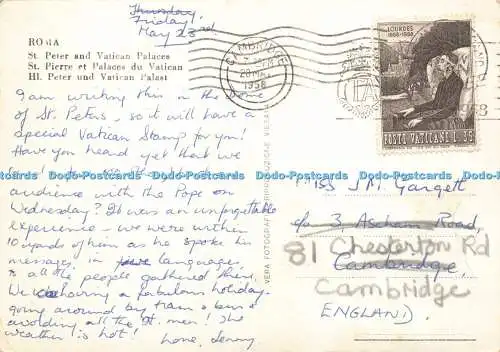 Thursday
Friday!
May 23rd
ROMA
St. Peter and Vatican Palaces
St. Pierre et Palaces du Vatican
Hl. Peter und Vatican Palast
I am writing this in the
of St. Peters, so it will have a
Special Vatican Stamp for you!
Have you heard yet that we
audience with the Pope on
Wednesday? It was an unforgettable
experience - we were within
10 yards of him as he spoke his
message in five languages
to all the people gathered there.
We're having a fabulous holiday -
going around by tram & bus &
avoiding all the St. men! The
weather is hot! Love, Jenny
CAMBRIDGE
1958
LOURDES
1858-1958
POSTE VATICANE L. 35
Miss J.M. Gargett
c/o 3, Ascham Road,
81 Chesterton Rd
Cambridge,
Cambridge
ENGLAND.
VERA FOTOGRAFIA
Dodo-Postcards Dodo-Postcards Dodo-Postcards Dodo-Postcards